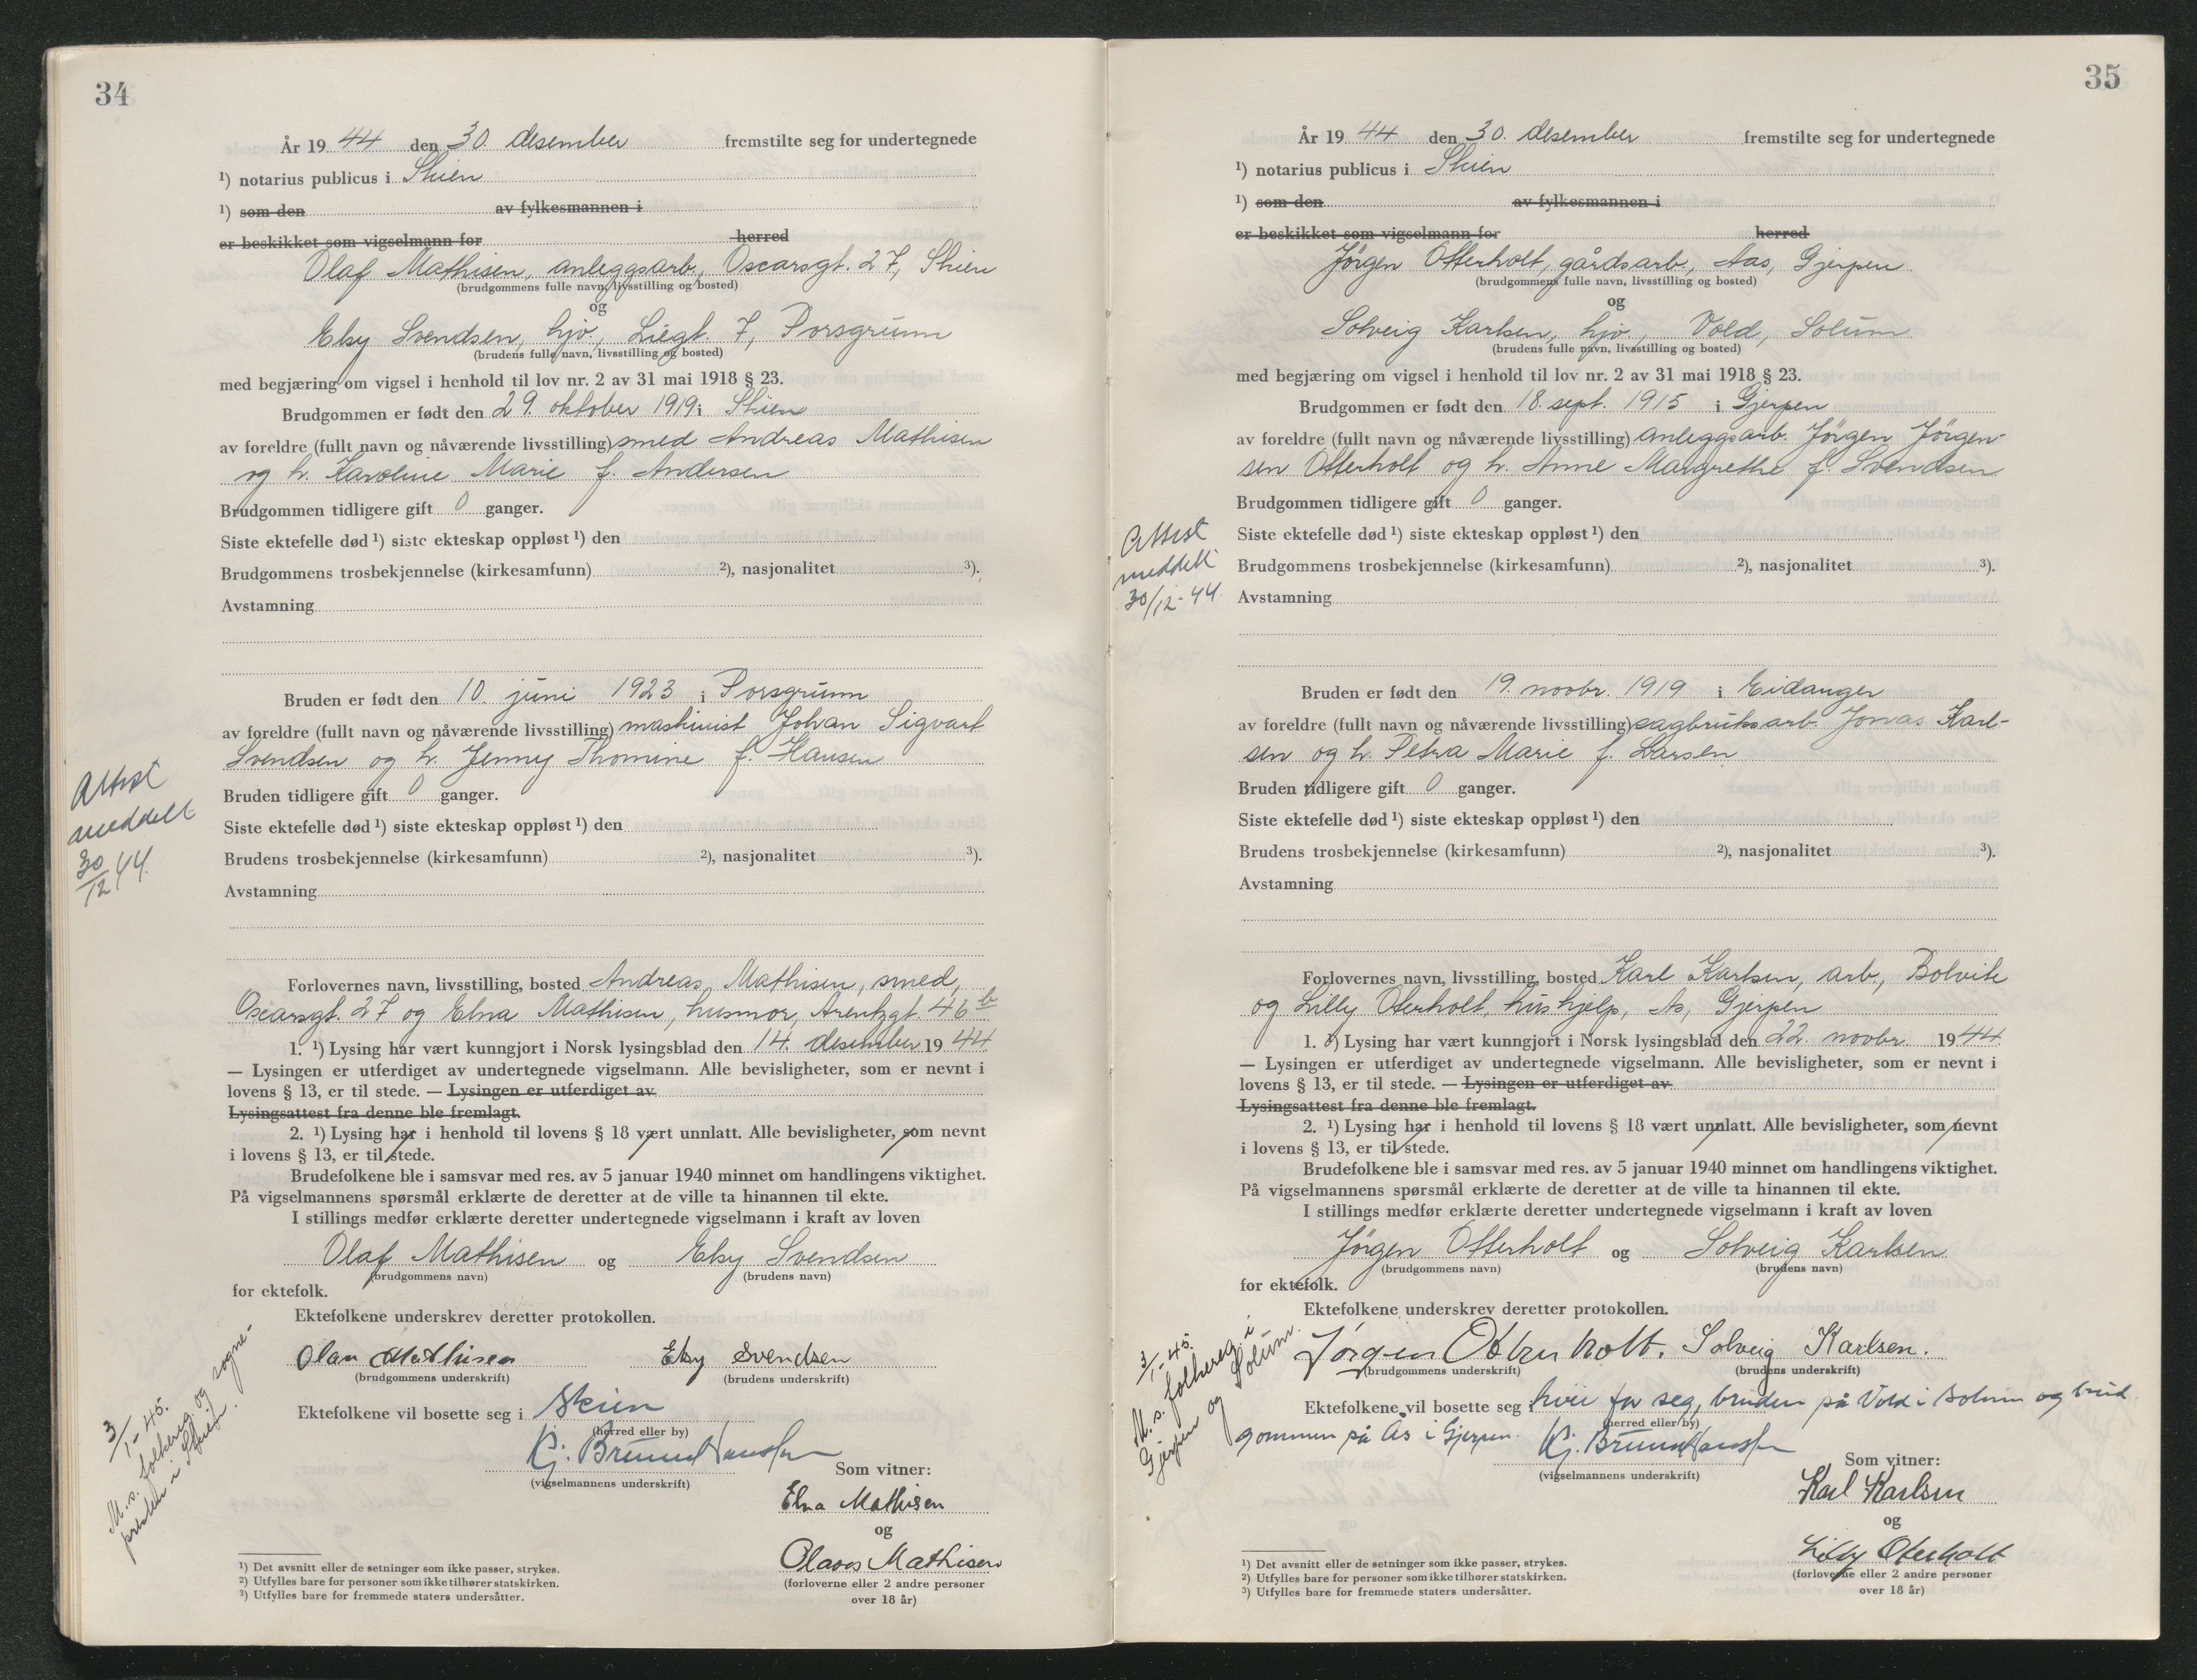 34
År 19 44 den 30. desember fremstilte seg for undertegnede
¹) notarius publicus i Skien
¹) som den av fylkesmannen i
er beskikket som vigselmann for herred
Olaf Mathisen, anleggsarb., Oscarsgt. 27, Skien
(brudgommens fulle navn, livsstilling og bosted)
og
Elsy Svendsen, hjv., Liegt. 7, Porsgrunn
(brudens fulle navn, livsstilling og bosted)
med begjæring om vigsel i henhold til lov nr. 2 av 31 mai 1918 § 23.
Brudgommen er født den 29. oktober 1919 i Skien
av foreldre (fullt navn og nåværende livsstilling) smed Andreas Mathisen
og h. Karoline Marie f. Andersen
Brudgommen tidligere gift 0 ganger.
Siste ektefelle død ¹) siste ekteskap oppløst ¹) den
Brudgommens trosbekjennelse (kirkesamfunn) ²), nasjonalitet ³).
Avstamning
Bruden er født den 10. juni 1923 i Porsgrunn
av foreldre (fullt navn og nåværende livsstilling) maskinist Johan Sigvart
Svendsen og h. Jenny Thomine f. Hansen
Bruden tidligere gift 0 ganger.
Siste ektefelle død ¹) siste ekteskap oppløst ¹) den
Brudens trosbekjennelse (kirkesamfunn) ²), nasjonalitet ³).
Avstamning
Attest
meddelt
30/12 44.
Forlovernes navn, livsstilling, bosted Andreas Mathisen, smed,
Oscarsgt. 27 og Elna Mathisen, husmor, Arentzgt. 46 b
1. ¹) Lysing har vært kunngjort i Norsk lysingsblad den 14. desember 19 44.
— Lysingen er utferdiget av undertegnede vigselmann. Alle bevisligheter, som er nevnt i
lovens § 13, er til stede. — Lysingen er utferdiget av
Lysingsattest fra denne ble fremlagt.
2. ¹) Lysing har i henhold til lovens § 18 vært unnlatt. Alle bevisligheter, som nevnt
i lovens § 13, er til stede.
Brudefolkene ble i samsvar med res. av 5 januar 1940 minnet om handlingens viktighet.
På vigselmannens spørsmål erklærte de deretter at de ville ta hinannen til ekte.
I stillings medfør erklærte deretter undertegnede vigselmann i kraft av loven
Olaf Mathisen og Elsy Svendsen
(brudgommens navn) (brudens navn)
for ektefolk.
Ektefolkene underskrev deretter protokollen.
Olav Mathisen Elsy Svendsen
(brudgommens underskrift) (brudens underskrift)
Ektefolkene vil bosette seg i Skien
(herred eller by)
Kj. Bruun Hanssen
(vigselmannens underskrift)
Som vitner:
Elna Mathisen
og
Olaves Mathisen
(forloverne eller 2 andre personer
over 18 år)
3/1-45.
M.s. folkereg. og sogne-
presten i Skien.
¹) Det avsnitt eller de setninger som ikke passer, strykes.
²) Utfylles bare for personer som ikke tilhører statskirken.
³) Utfylles bare for fremmede staters undersåtter.
35
År 19 44 den 30. desember fremstilte seg for undertegnede
¹) notarius publicus i Skien
¹) som den av fylkesmannen i
er beskikket som vigselmann for herred
Jørgen Otterholt, gårdsarb., Aas, Gjerpen
(brudgommens fulle navn, livsstilling og bosted)
og
Solveig Karlsen, hjv., Vold, Solum
(brudens fulle navn, livsstilling og bosted)
med begjæring om vigsel i henhold til lov nr. 2 av 31 mai 1918 § 23.
Brudgommen er født den 18. sept. 1915 i Gjerpen
av foreldre (fullt navn og nåværende livsstilling) anleggsarb. Jørgen Jørgen-
sen Otterholt og h. Anne Margrethe f. Svendsen
Brudgommen tidligere gift 0 ganger.
Siste ektefelle død ¹) siste ekteskap oppløst ¹) den
Brudgommens trosbekjennelse (kirkesamfunn) ²), nasjonalitet ³).
Avstamning
Attest
meddelt
30/12-44.
Bruden er født den 19. novbr. 1919 i Eidanger
av foreldre (fullt navn og nåværende livsstilling) sagbruksarb. Jonas Karl-
sen og h. Petra Marie f. Larsen
Bruden tidligere gift 0 ganger.
Siste ektefelle død ¹) siste ekteskap oppløst ¹) den
Brudens trosbekjennelse (kirkesamfunn) ²), nasjonalitet ³).
Avstamning
Forlovernes navn, livsstilling, bosted Karl Karlsen, arb., Bolvik
og Lilly Oterholt, hushjelp, As, Gjerpen
1. ¹) Lysing har vært kunngjort i Norsk lysingsblad den 22. novbr. 19 44
— Lysingen er utferdiget av undertegnede vigselmann. Alle bevisligheter, som er nevnt i
lovens § 13, er til stede. — Lysingen er utferdiget av
Lysingsattest fra denne ble fremlagt.
2. ¹) Lysing har i henhold til lovens § 18 vært unnlatt. Alle bevisligheter, som nevnt
i lovens § 13, er til stede.
Brudefolkene ble i samsvar med res. av 5 januar 1940 minnet om handlingens viktighet.
På vigselmannens spørsmål erklærte de deretter at de ville ta hinannen til ekte.
I stillings medfør erklærte deretter undertegnede vigselmann i kraft av loven
Jørgen Otterholt og Solveig Karlsen
(brudgommens navn) (brudens navn)
for ektefolk.
Ektefolkene underskrev deretter protokollen.
Jørgen Otterholt. Solveig Karlsen.
(brudgommens underskrift) (brudens underskrift)
Ektefolkene vil bosette seg i hver for seg, bruden på Vold i Solum og brud-
gommen på Ås i Gjerpen.
(herred eller by)
Kj. Bruun Hanssen
(vigselmannens underskrift)
Som vitner:
Karl Karlsen
og
Lilly Oterholt
(forloverne eller 2 andre personer
over 18 år)
3/1-45.
M.s. folkereg. i
Gjerpen og Solum.
¹) Det avsnitt eller de setninger som ikke passer, strykes.
²) Utfylles bare for personer som ikke tilhører statskirken.
³) Utfylles bare for fremmede staters undersåtter.